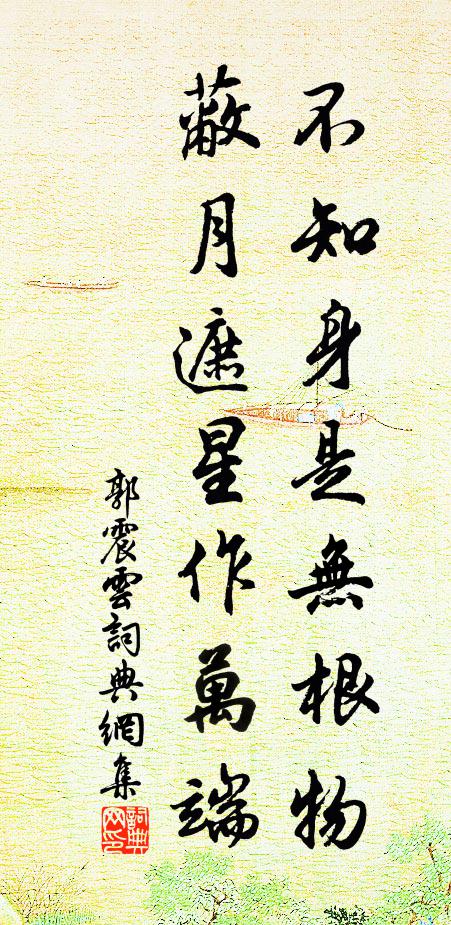 不知身是無根物
蔽月遮星作萬端
郭震雲詞典網集
詞典
网印